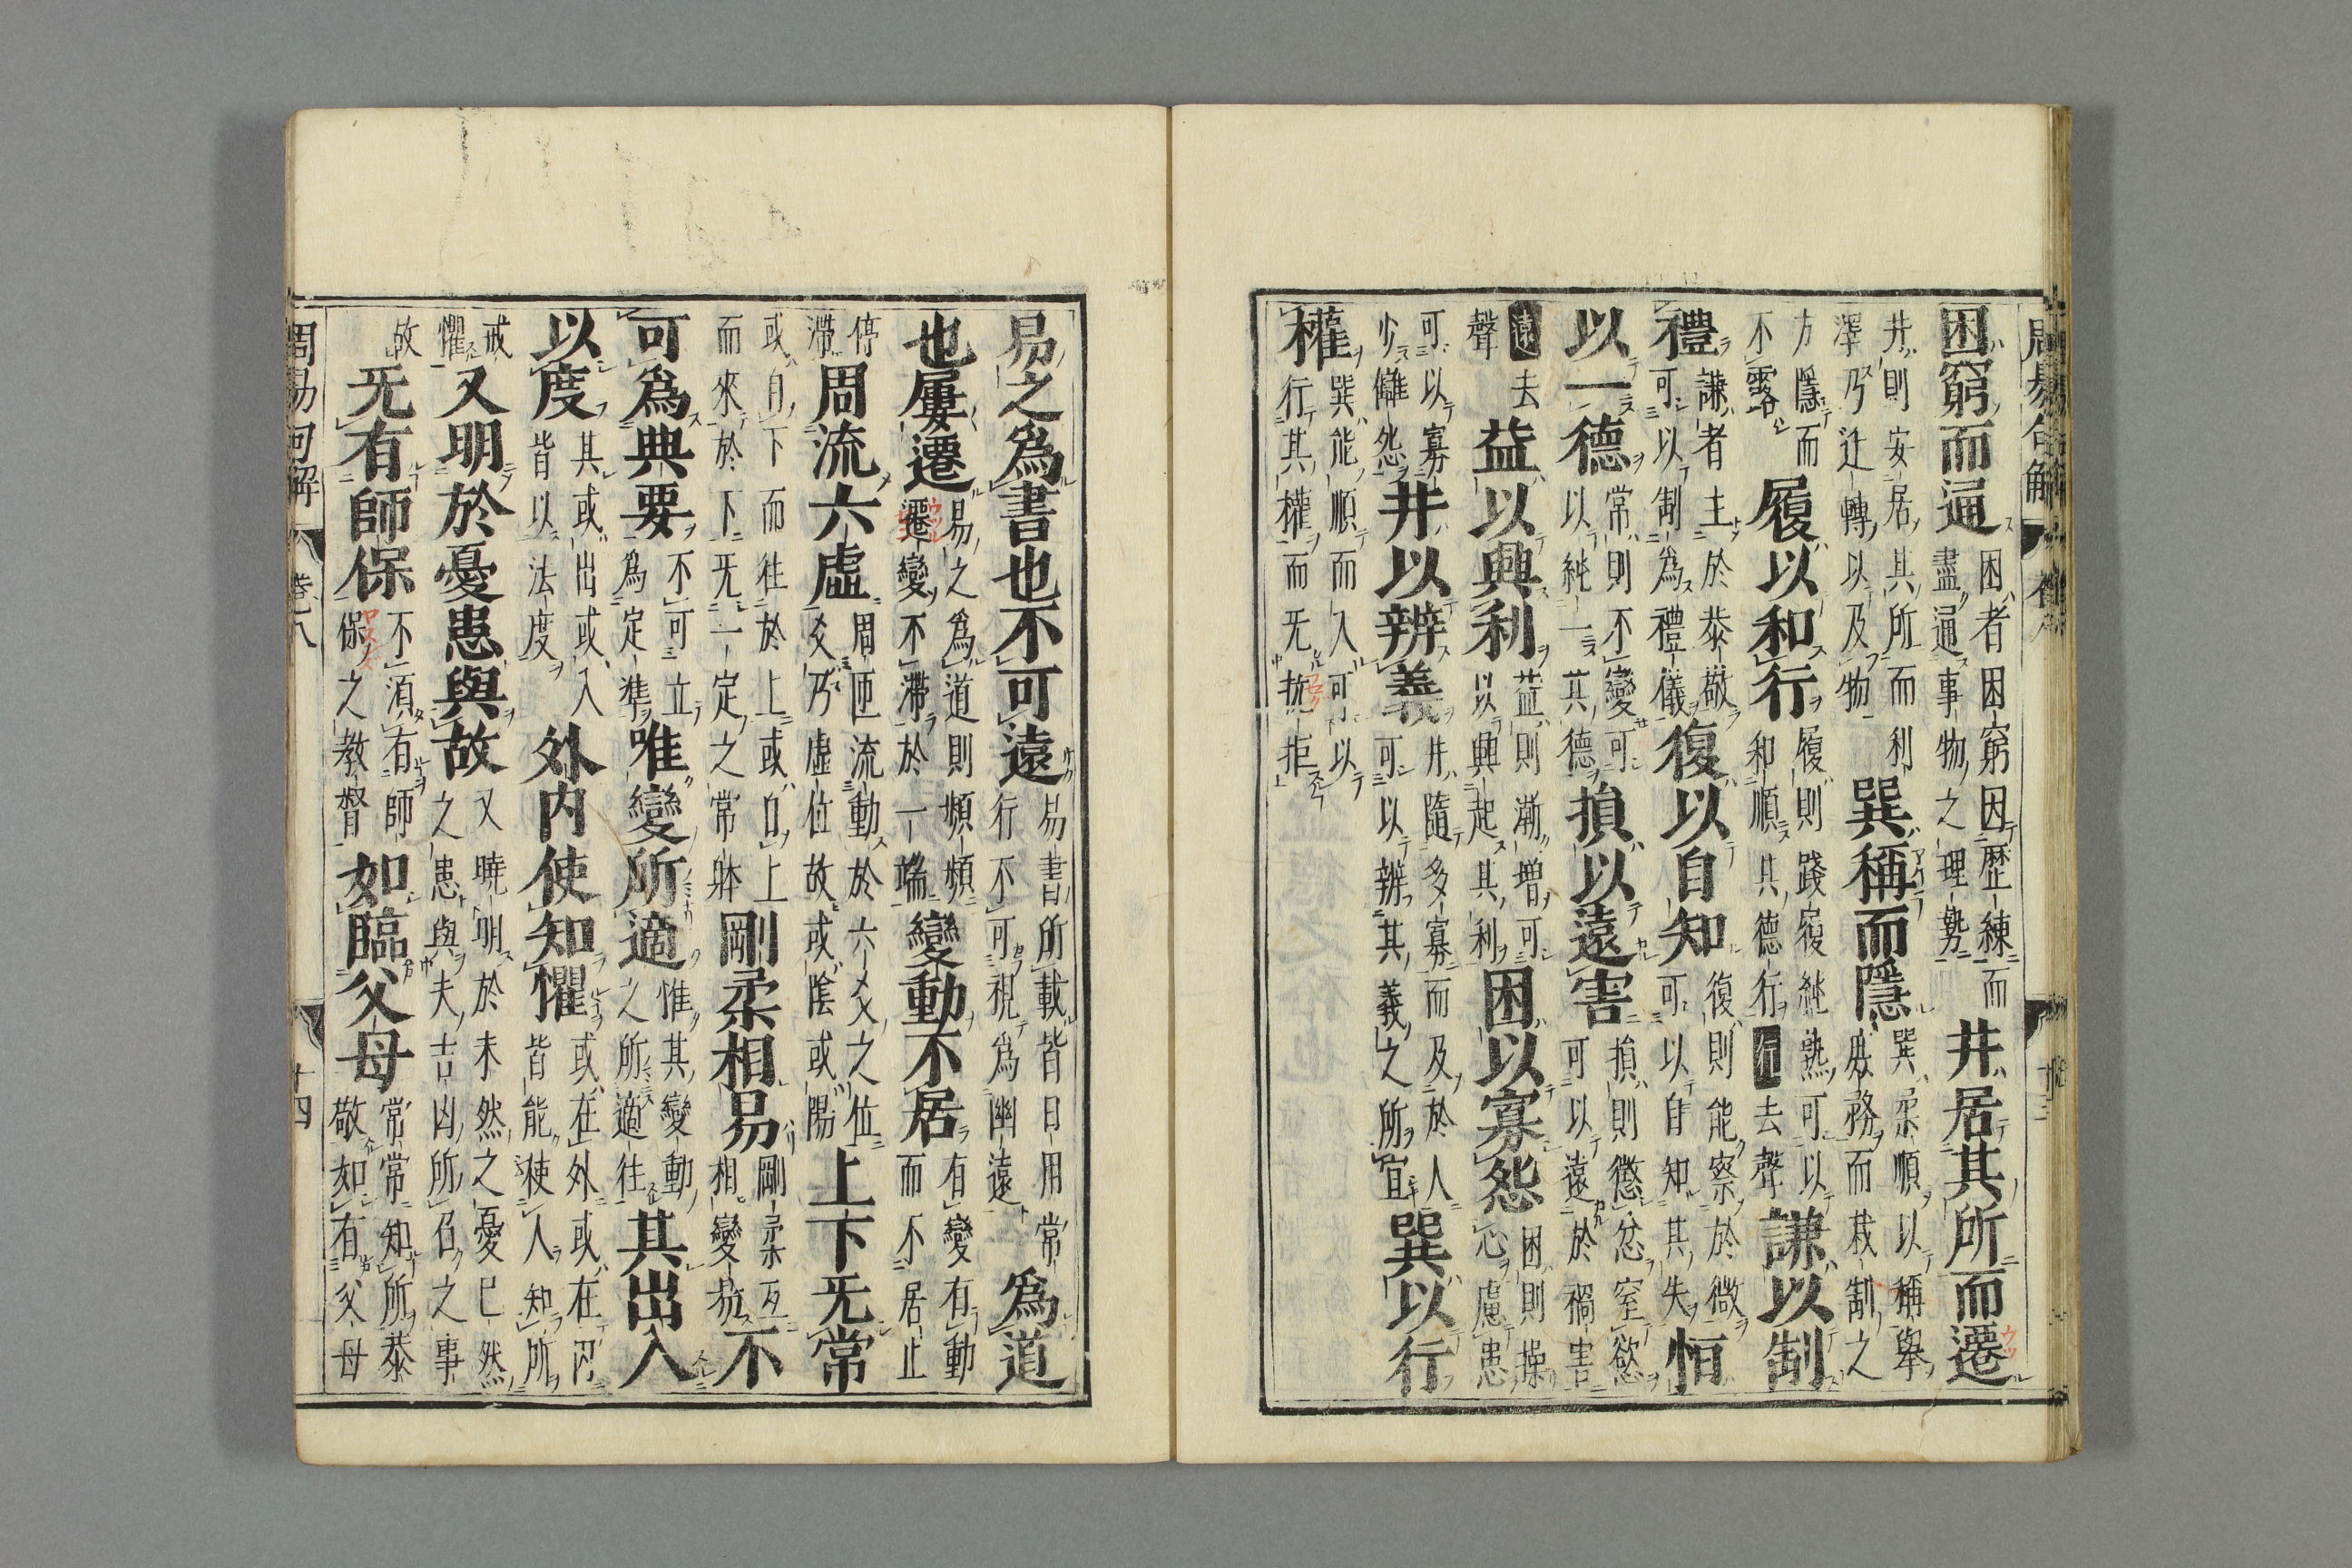 周易句解
困窮而通困者困窮因歷練而盡通事物之理勢井居其所而遷
井則安居其所而利澤乃迁轉以及物巽稱而隱巽柔順以稱舉㕝務而栽制之
方隱而不露履以和行履則踐履純熟可以和順其德行行去聲謙以制
禮謙者主於恭敬可以制爲禮儀復以自知復則能察於微可以自知其失恒
以一德常則不變可以純一其德損以遠害損則懲忿窒慾可以遠於禍害
遠去聲益以興利益則漸增可以興起其利困以寡怨困則操心慮患
可以寡少讎怨井以辨義井隨多寡而及於人可以辨其義之所宜巽以行
權巽能順而入可以行其權而无拒
易之爲書也不可遠易書所載皆日用常行不可視爲幽遠爲道
也屢遷易之爲道則頻頻遷變不滯於一端變動不居有變有動而不居止
停滯周流六虛周匝流動於六爻之位爻乃虛位故或陰或陽上下无常
或自下而往於上或自上而來於下无一定之常躰剛柔相易剛柔互相變易不
可爲典要不可立爲定準唯變所適惟其變動之所適往其出入
以度其或出或入皆以法度外内使知懼或在外或在内皆能使人知所
戒懼又明於憂患與故又曉明於未然之憂已然之患與夫吉凶所召之事
故无有師保不須有師保之教督如臨父母常常知所恭敬如有父母
周易句解 卷八 十四